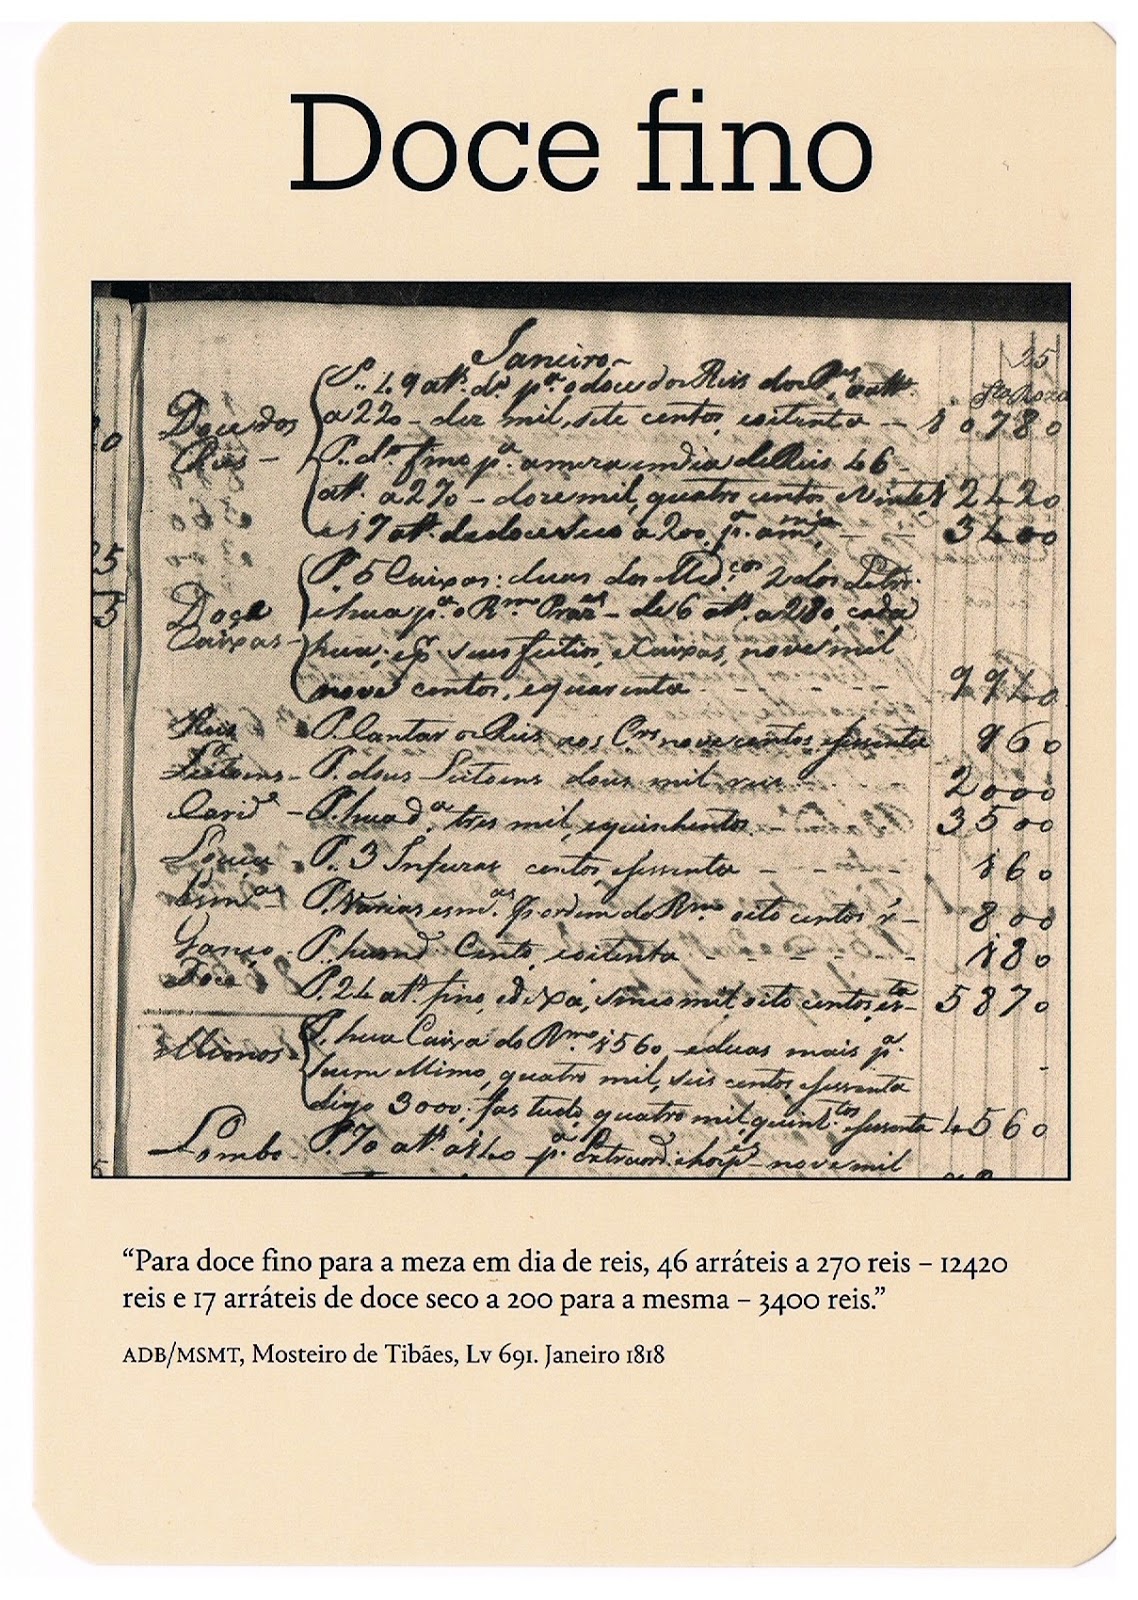 Doce fino
Janeiro
25
Doce dos
Reis
P. 49 att. de pª o doce dos Reis dos
a 220 - dez mil, sete centos, e oitenta - 10780
P. do fino pª a meza em dia de Reis 46
att. a 270 - doze mil, quatro centos e vinte 12420
e 17 att. de doce seco a 200 pª a mma - 3400
Doce
Caixas
P. 5 Caixas: duas dos Med.cos 2 dos Letr.
e hua pª o Rmo - de 6 att. a 280 cada
hua; e seus feitios, e Caixas, nove mil
nove centos, e quarenta - - - - 9940
Reis - P. Cantar os Reis aos nove centos e sessenta 960
Leitoens - P. dous Leitoens dous mil reis - - 2000
Carid.e - P. hua dª, tres mil, e quinhentos - 3500
Louça - P. 3 Infuzas cento, e sessenta - - - - 160
Esmªs - P. Varias esm.as por ordem do Rmo oito centos r - 800
P. hum Cento, e oitenta - - - - - 180
Doce P. 24 att. fino, sinco mil, oito centos, e - 5870
Mimos
P. hua Caixa do Rmo 1560 e duas mais pª
hum Mimo, quatro mil, seis centos e sessenta
digo 3000; fas tudo, quatro mil, quintos e sessenta 4560
Lombo - P. 70 att. a 140 - pª nove mil
“Para doce fino para a meza em dia de reis, 46 arráteis a 270 reis – 12420
reis e 17 arráteis de doce seco a 200 para a mesma – 3400 reis.”
ADB/MSMT, Mosteiro de Tibães, Lv 691. Janeiro 1818